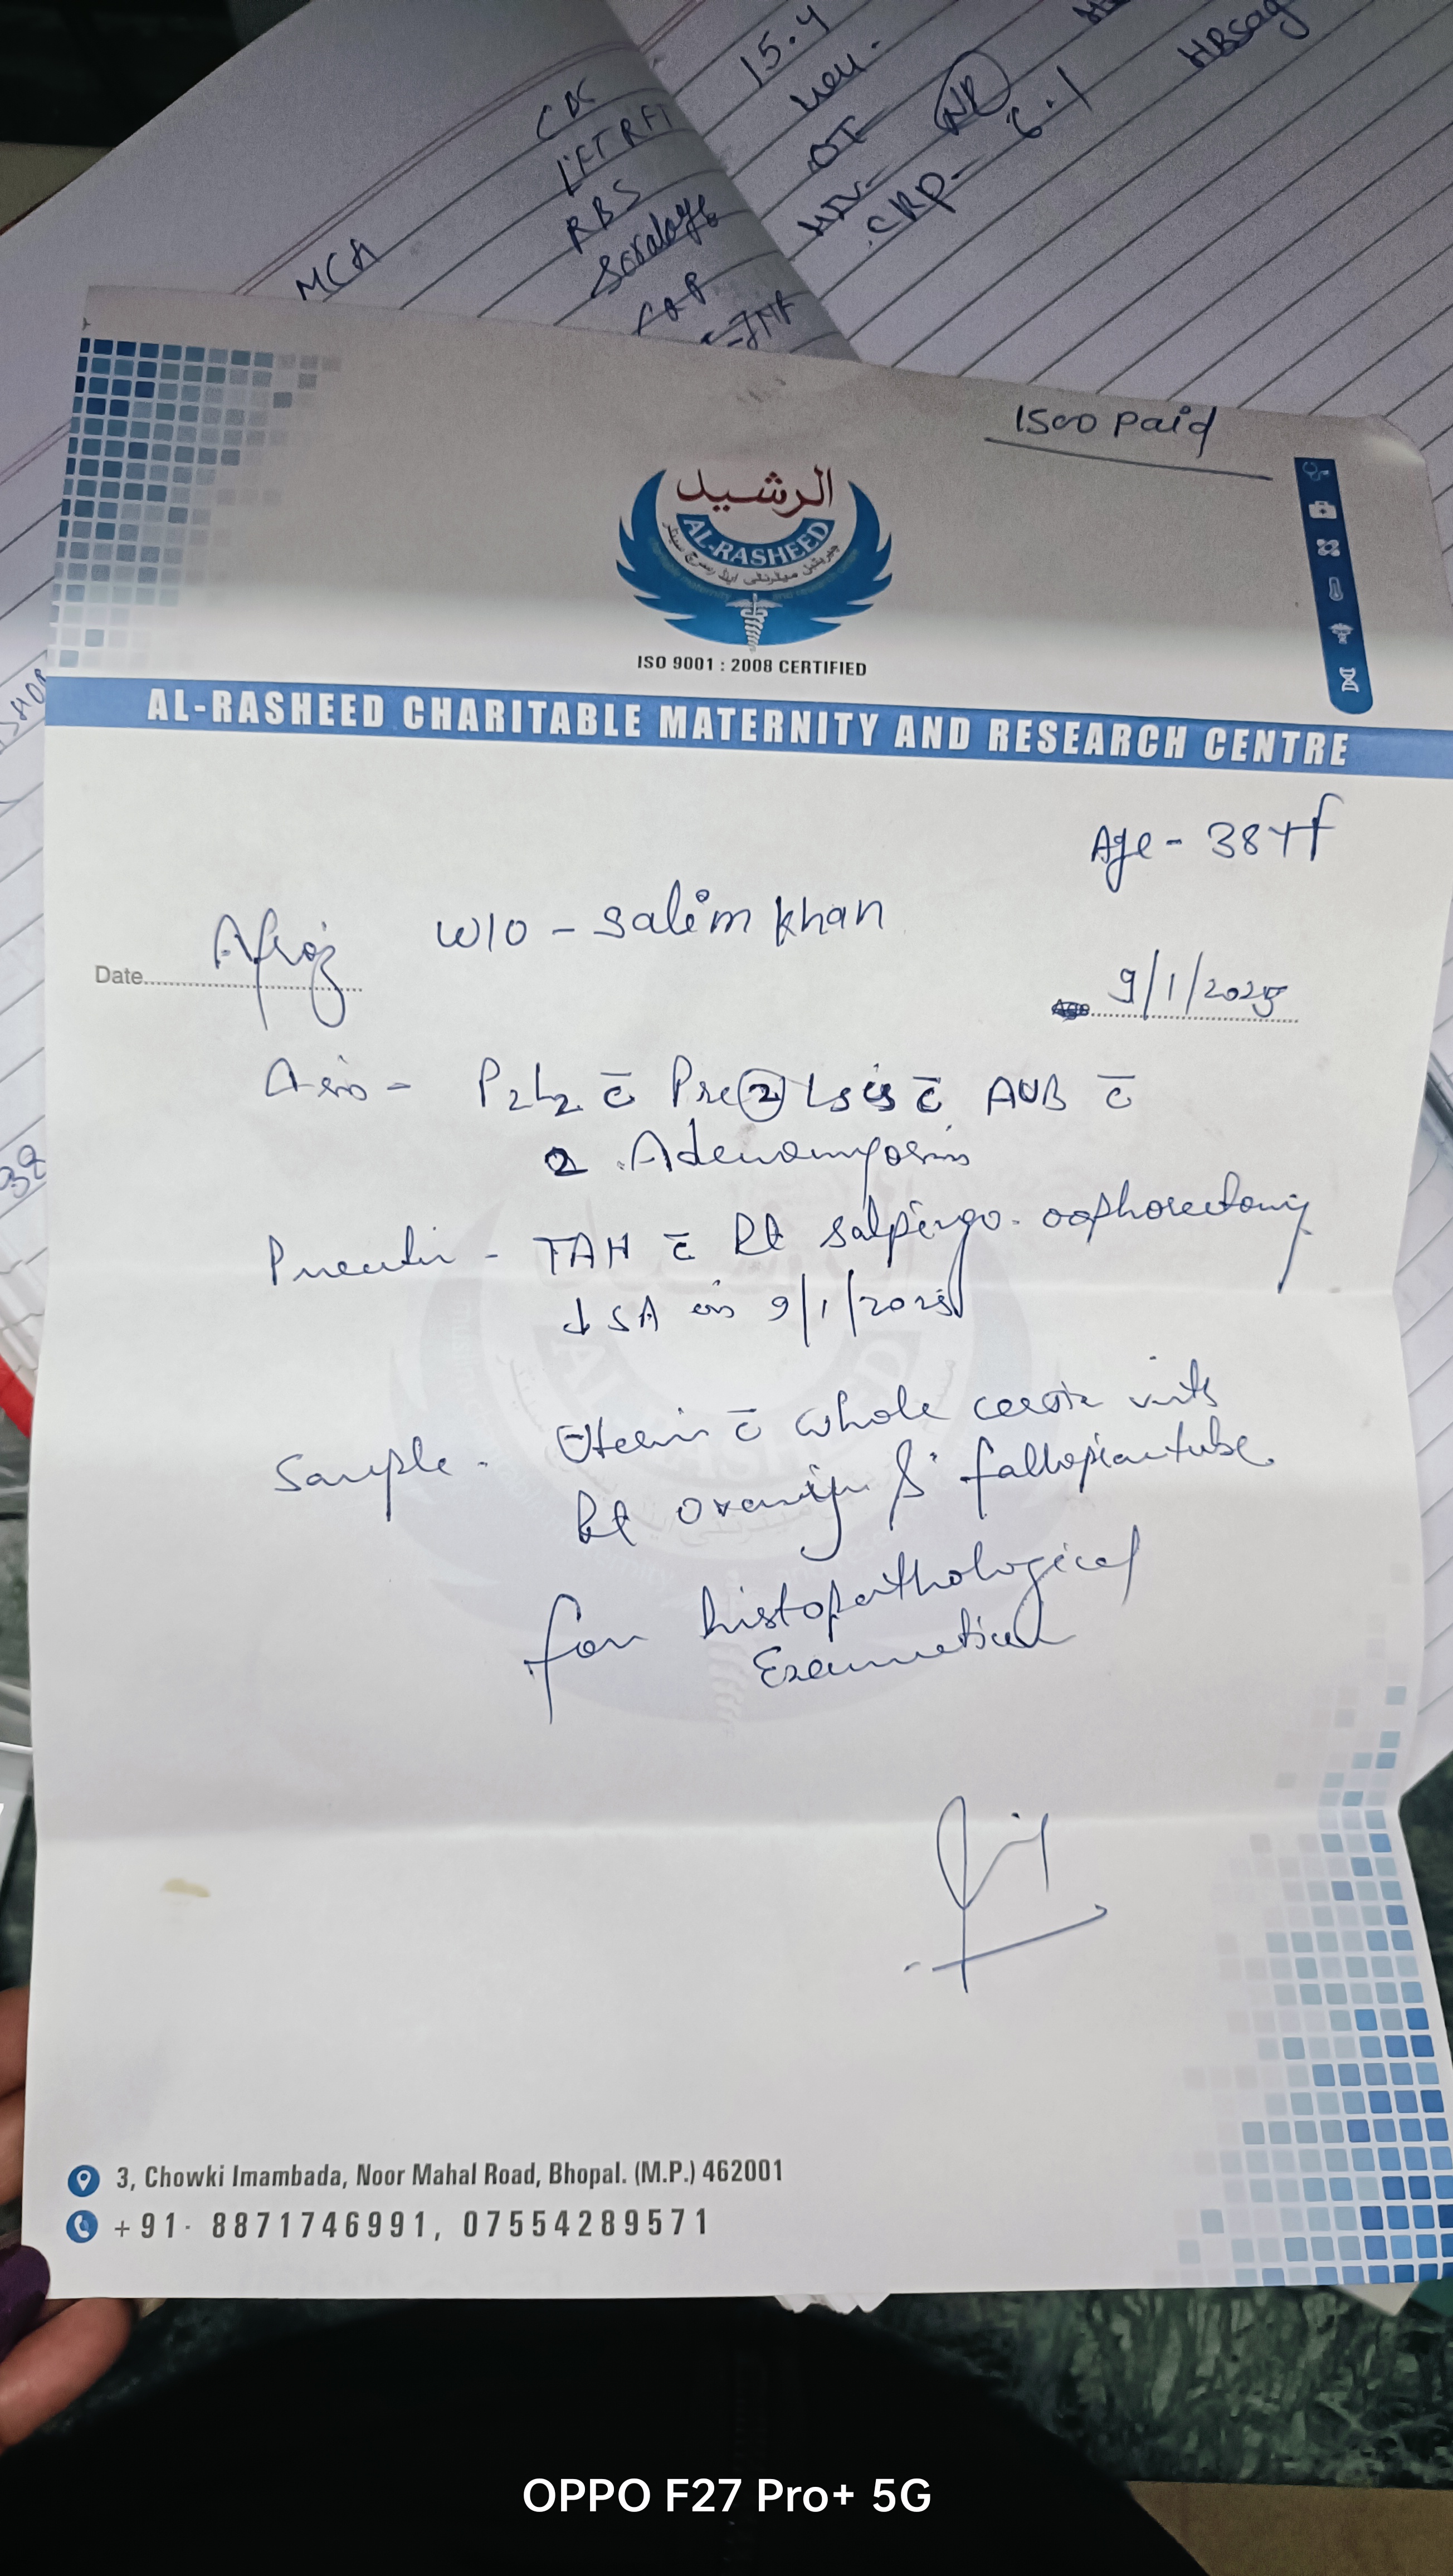 CBC
LFT RFT
RBS
MCA
15.4
OT
HIV- NR
CRP- 6.1
HBsag
1500 Paid
الرشيد
AL-RASHEED
ISO 9001 : 2008 CERTIFIED
AL-RASHEED CHARITABLE MATERNITY AND RESEARCH CENTRE
Age - 38 Y f
Afroj W/O - Salim Khan
Date
Age 9/1/2025
P2L2 c̄ Pre 2 LSCS c̄ AUB c̄
Adenomyosis
TAH c̄ Rt salpingo-oophorectomy
↓ SA on 9/1/2025
Sample - Uterus c̄ whole cervix with
Rt ovary & fallopian tube
for histopathological
Examination
3, Chowki Imambada, Noor Mahal Road, Bhopal. (M.P.) 462001
+91- 8871746991, 07554289571
OPPO F27 Pro+ 5G